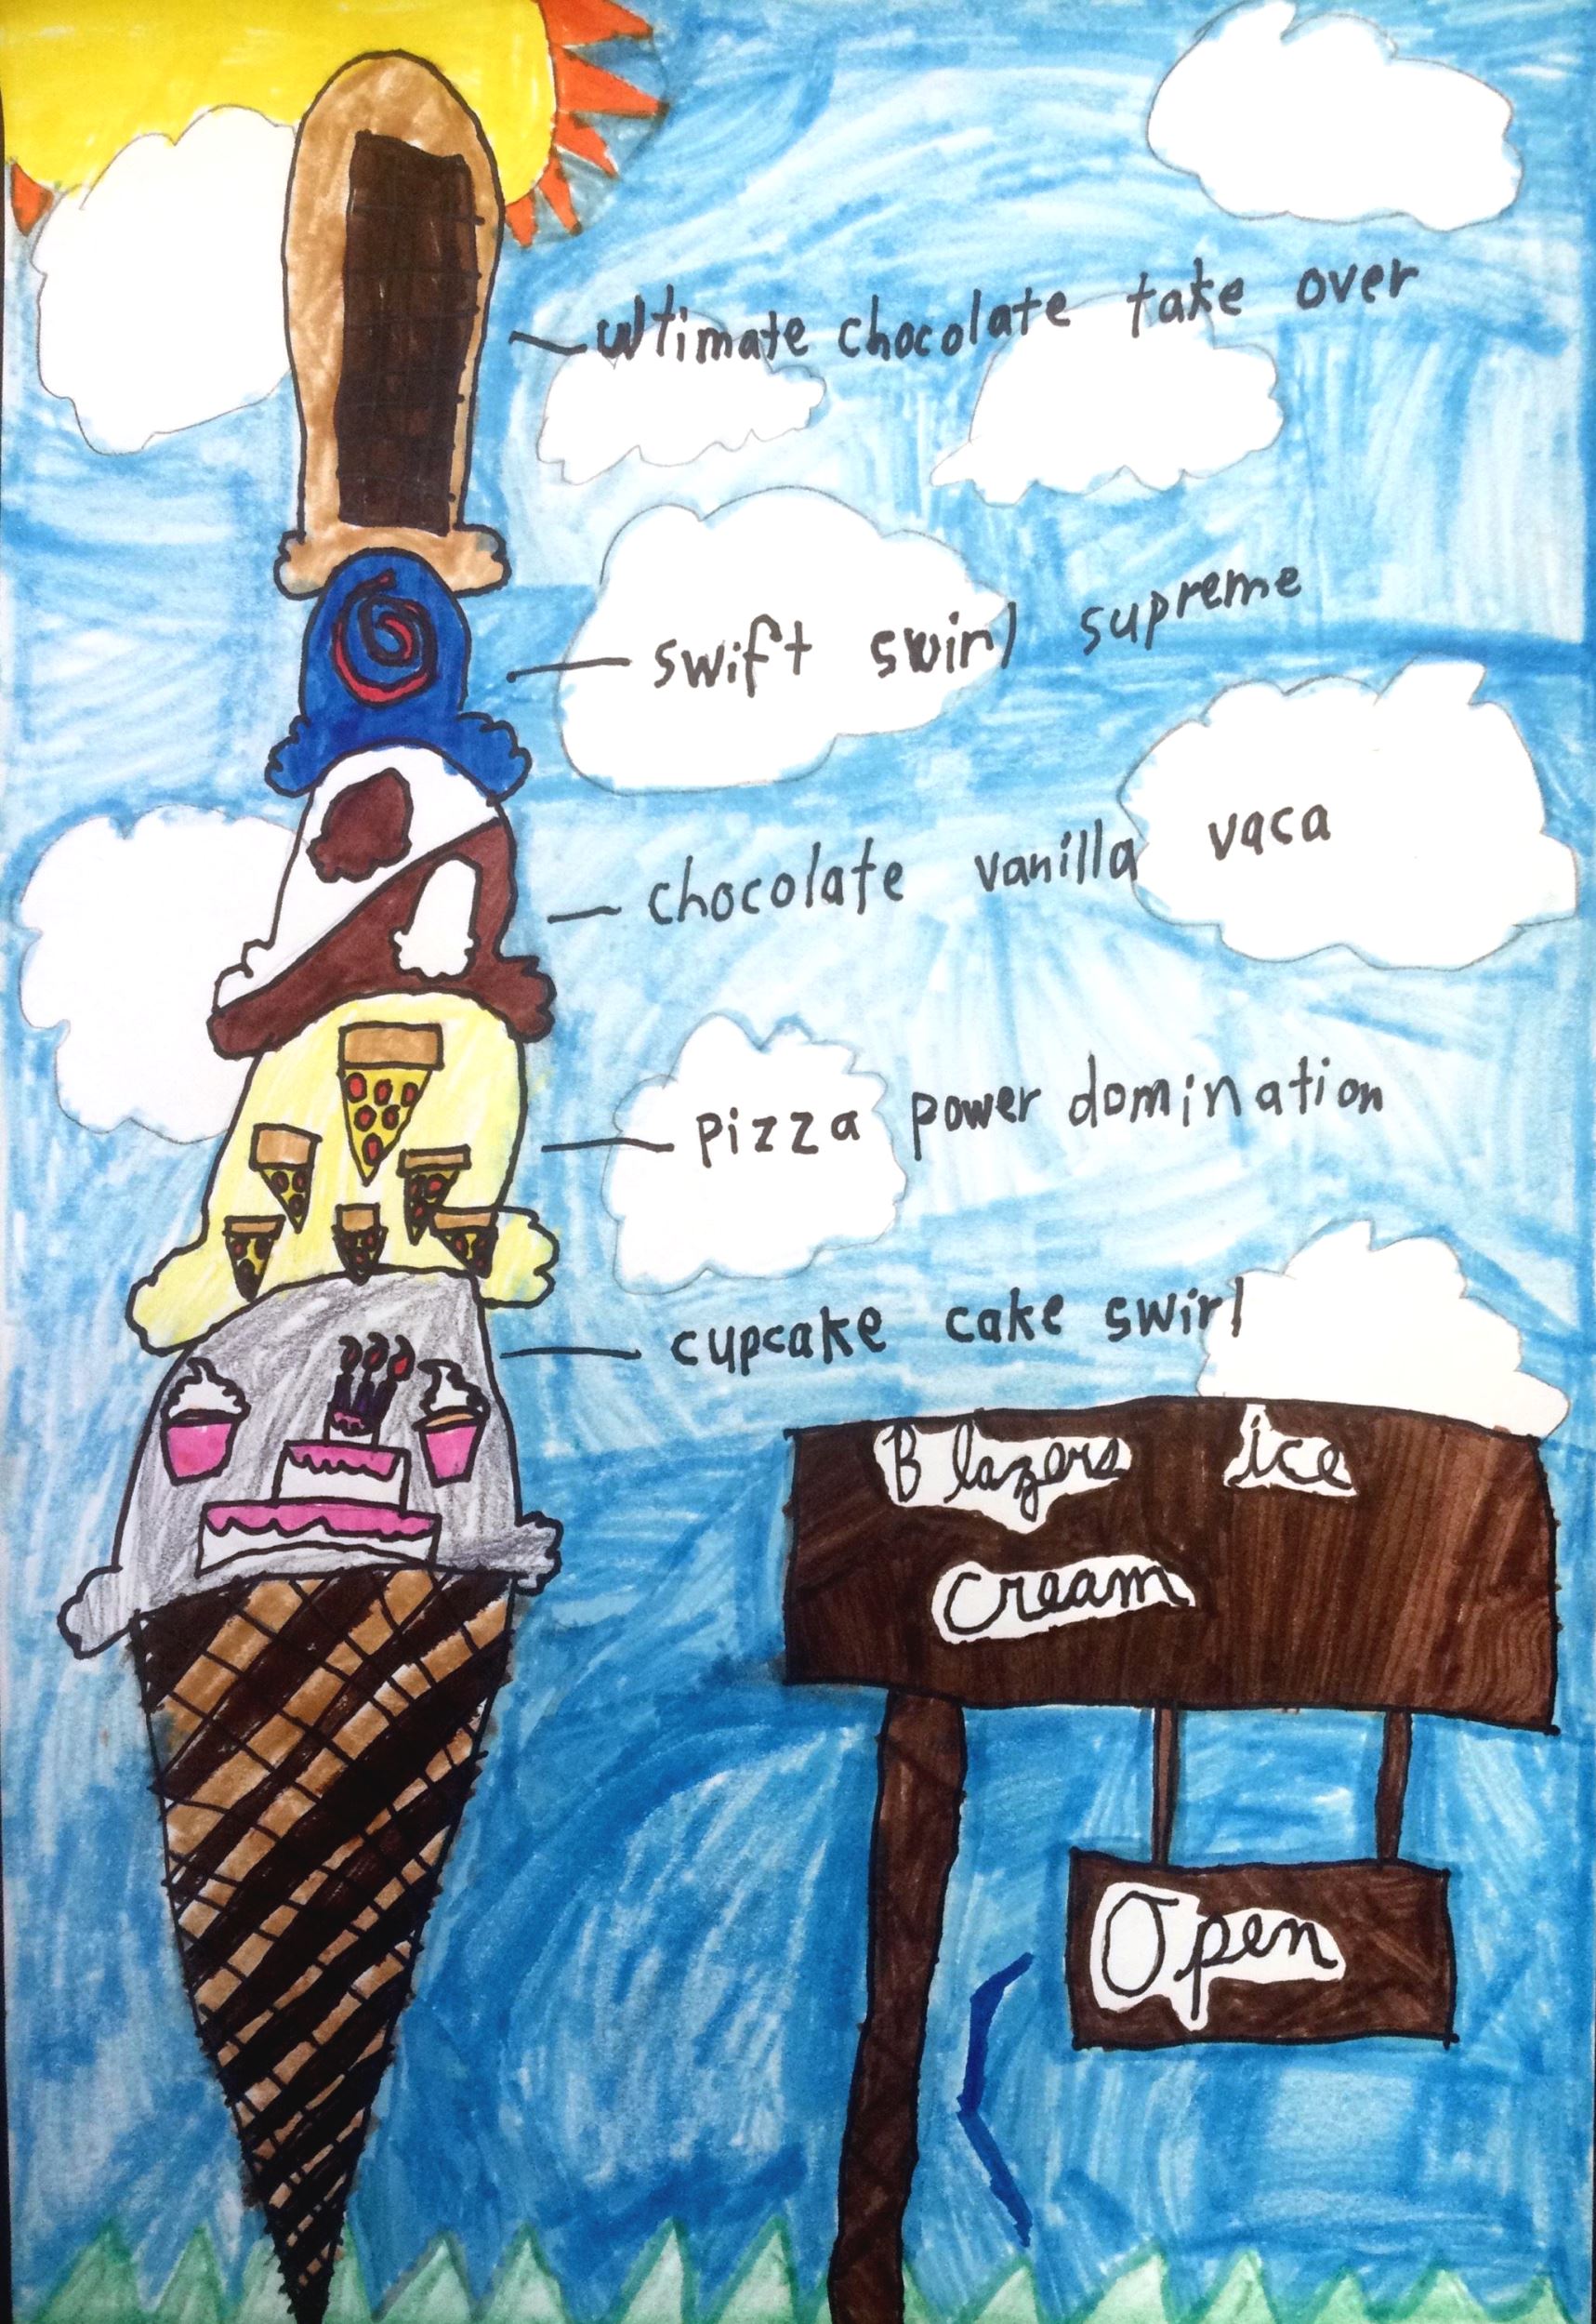 ultimate chocolate take over
swift swirl supreme
chocolate vanilla vaca
pizza power domination
cupcake cake swirl
Blazers ice
cream
Open